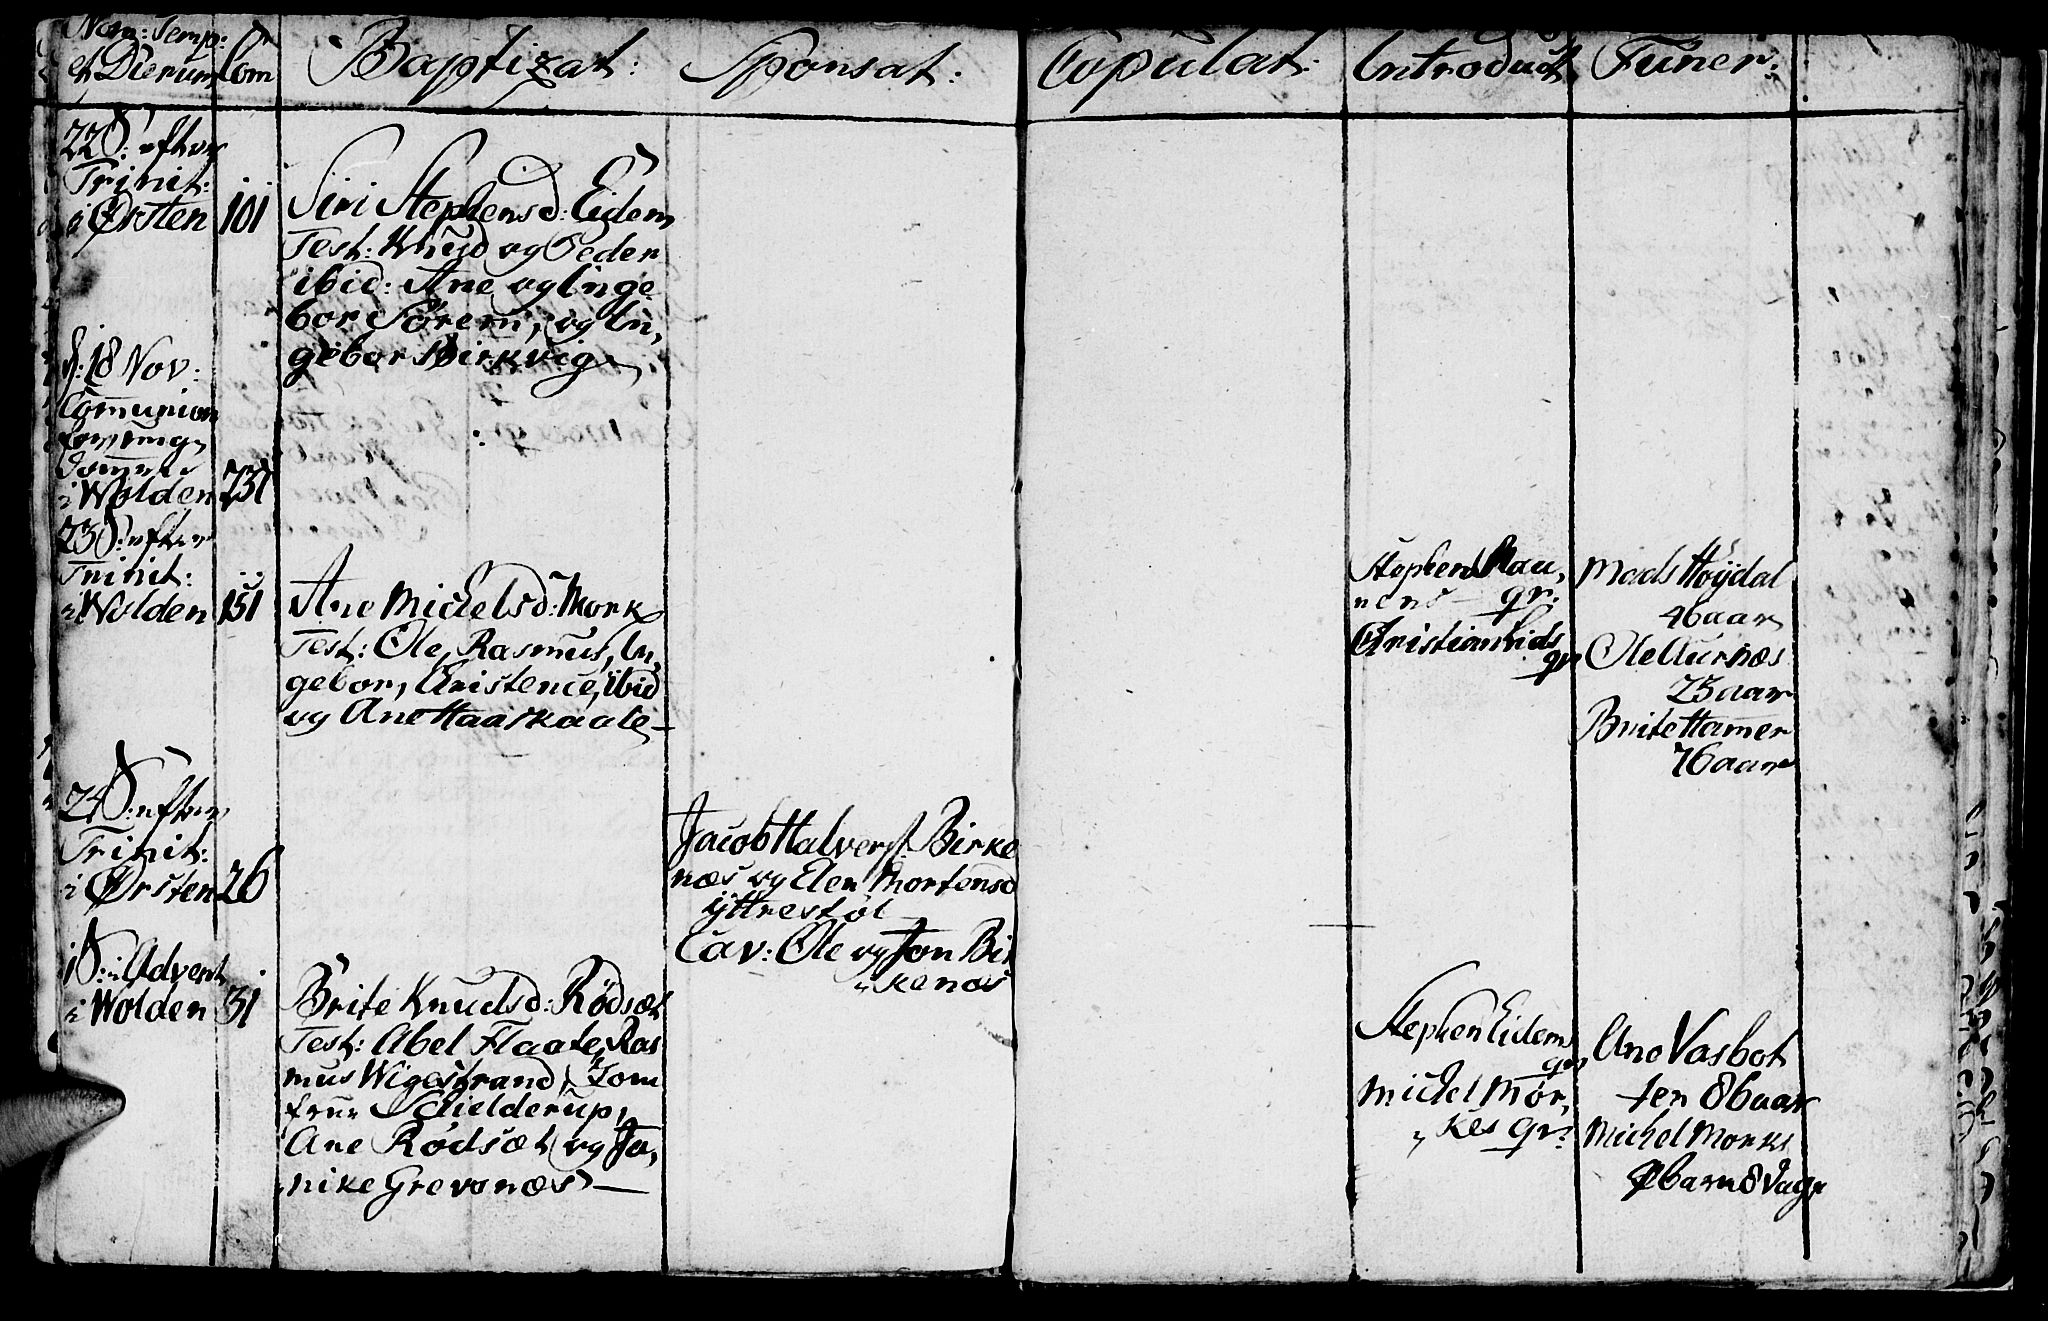 Nom: Temp:
et Dierum
Com
Baptizat:
Sponsat:
Copulat:
Introduct:
Funer:
22 S: efter
Trinit:
i Ørsten
101
Siri Stephensd: Eidem
Test: Knud og Peder
ibid: Ane og Inge-
bor Sørem, og In,
gebor Birkvig
d: 18 Nov:
Communion
i Wolden
231
23 S: efter
Trinit:
i Wolden
151
Ane Michelsd: Mork
Test: Ole, Rasmus, In,
gebor, Christence, ibid
og Ane Haaskaale
Stephen
gr:
Christian
gr
Mads Høydal
46 aar
Ole Aurnæs
25 aar
Brite Hamer
76 aar
24 S: efter
Trinit:
i Ørsten
26
Jacob Halvers: Birke
næs og Elen Mortensd
ÿttrestøl
Cav: Ole og Jon Bir
kenæs
1 S: i Advent
i Wolden
31
Brite Knudsd: Rødsæt
Test: Abel Flaate, Ras
mus Wigestrand, Jom
frue Schielderup,
Ane Rødsæt og Ja,
nike Grevonæs
Stephen Eidems
gr
Michel Mor,
kes gr:
Ane Vasbot
ten 86 aar
Michel Morks
barn 8 Dage